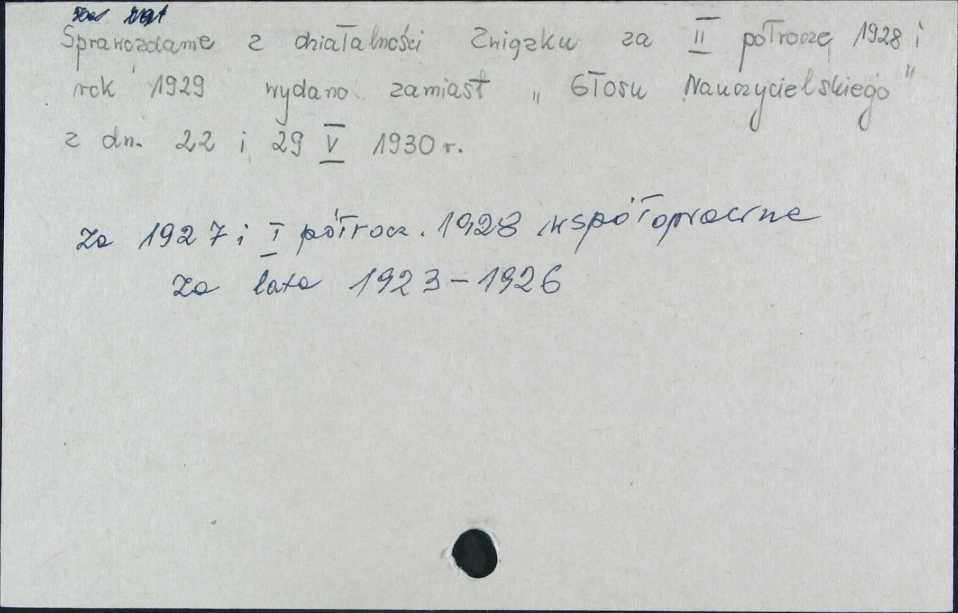 Sprawozdanie z działalności Związku za II półrocze 1928 i
rok 1929 wydano zamiast „Głosu Nauczycielskiego"
z dn. 22 i 29 V 1930 r.
Za 1927 i I półrocz. 1928 współoprawne
Za lata 1923-1926